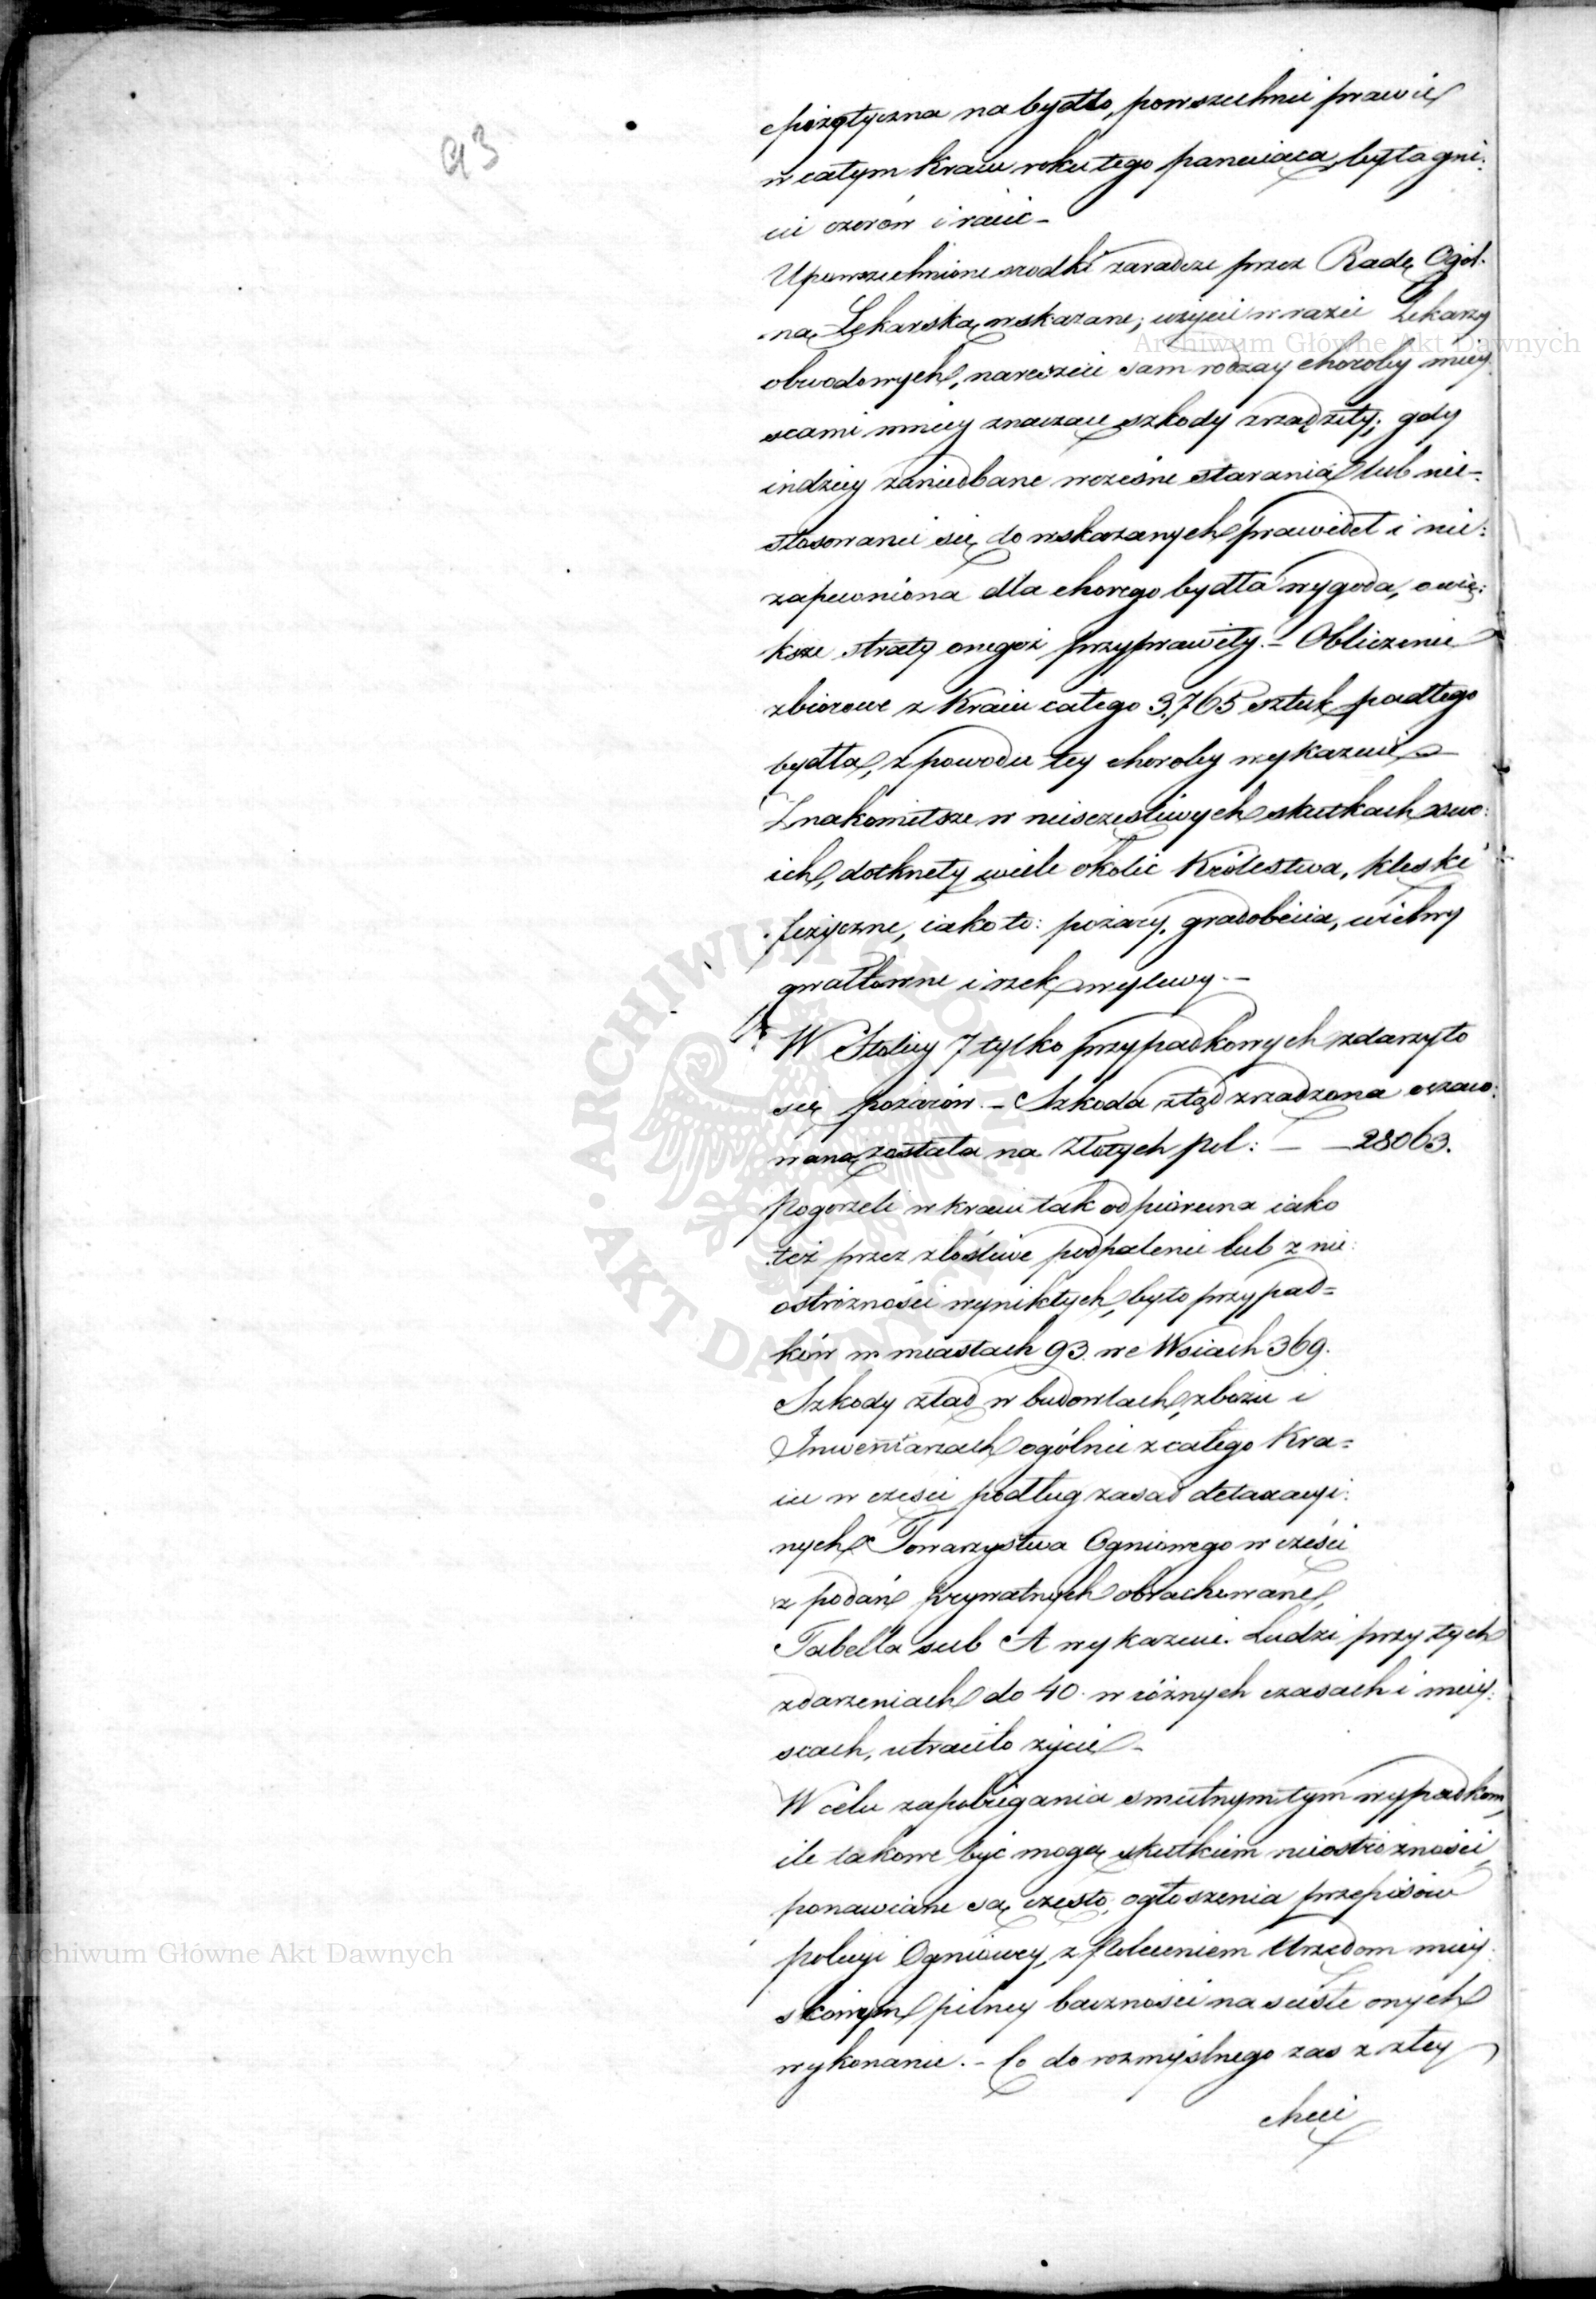 93
epizotyczna na bydło, powszechnie prawie
w całym Kraiu roku tego panuiąca, była gni:
cie ozorów i racic –
Upowszechnione srodki zaradcze przez Radę Ogól:
ną Lękarską wskazane; użycie w razie Lekarzy
obwodowych, nareszcie sam rodzay choroby mięy
scami mniey znaczące szkody zrządziły; gdy
indziey zaniedbane wczesne starania lub nie=
stosowanie się do wskazanych prawideł i nie:
zapewniona dla chorego bydła wygoda, o wię:
ksze straty onegoż przyprawiły. – Obliczenie
zbiorowe z Kraiu całego 3,765 sztuk padłego
bydła, z powodu tey choroby wykazuie –
Znakomitsze w nieszczesliwych skutkach swo:
ich, dotknęły wiele okolic Królestwa, klęski
fizyczne, iako to: pożary, gradobicia, wichry
gwałtowne i rzek wylewy. –
W Stolicy 7 tylko przypadkowych zdarzyło
się pożarów. – Szkoda ztąd zrządzona oszaco:
waną została na Złotych pol: – – 28063.
Pogorzeli w kraiu tak od pioruna iako
też przez złośliwe podpalenie lub z nie:
ostróżności wynikłych, było przypad=
ków w miastach 93. we Wsiach 369.
Szkody ztąd w budowlach, zbożu i
Inwentarzach ogólnie z całego Kra=
iu w części podług zasad detaxacyi:
nych Towarzystwa Ogniowego w części
z podań prywatnych obrachowane,
Tabella sub A wykazuie. Ludzi przy tych
zdarzeniach do 40. w różnych czasach i mięy:
scach, utraciło życie –
W celu zapobiegania smutnym tym wypadkom,
ile takowe być mogą skutkiem nieostrożności,
ponawiane są często, ogłoszenia przepisów
policyi Ogniowey, z Poleceniem Urzędom mięy
skowym pilney baczności na scisłe onych
wykonanie. – Co do rozmyślnego zas z złey
chęci
Archiwum Główne Akt Dawnych
Archiwum Główne Akt Dawnych
ARCHIWUM GŁÓWNE · AKT DAWNYCH ·